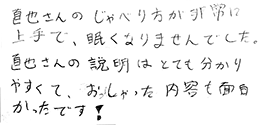 直也さんのしゃべり方が非常に
上手で、眠くなりませんでした。
直也さんの説明はとても分かり
やすくて、おっしゃった内容も面白
かったです！